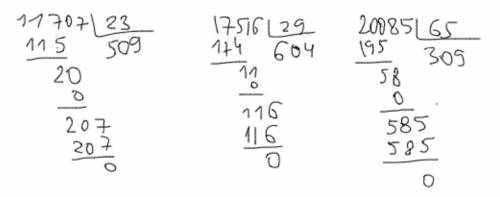 11707 23
115 509
20
0
207
207
0
17516 29
174 604
11
0
116
116
0
20085 65
195 309
58
0
585
585
0